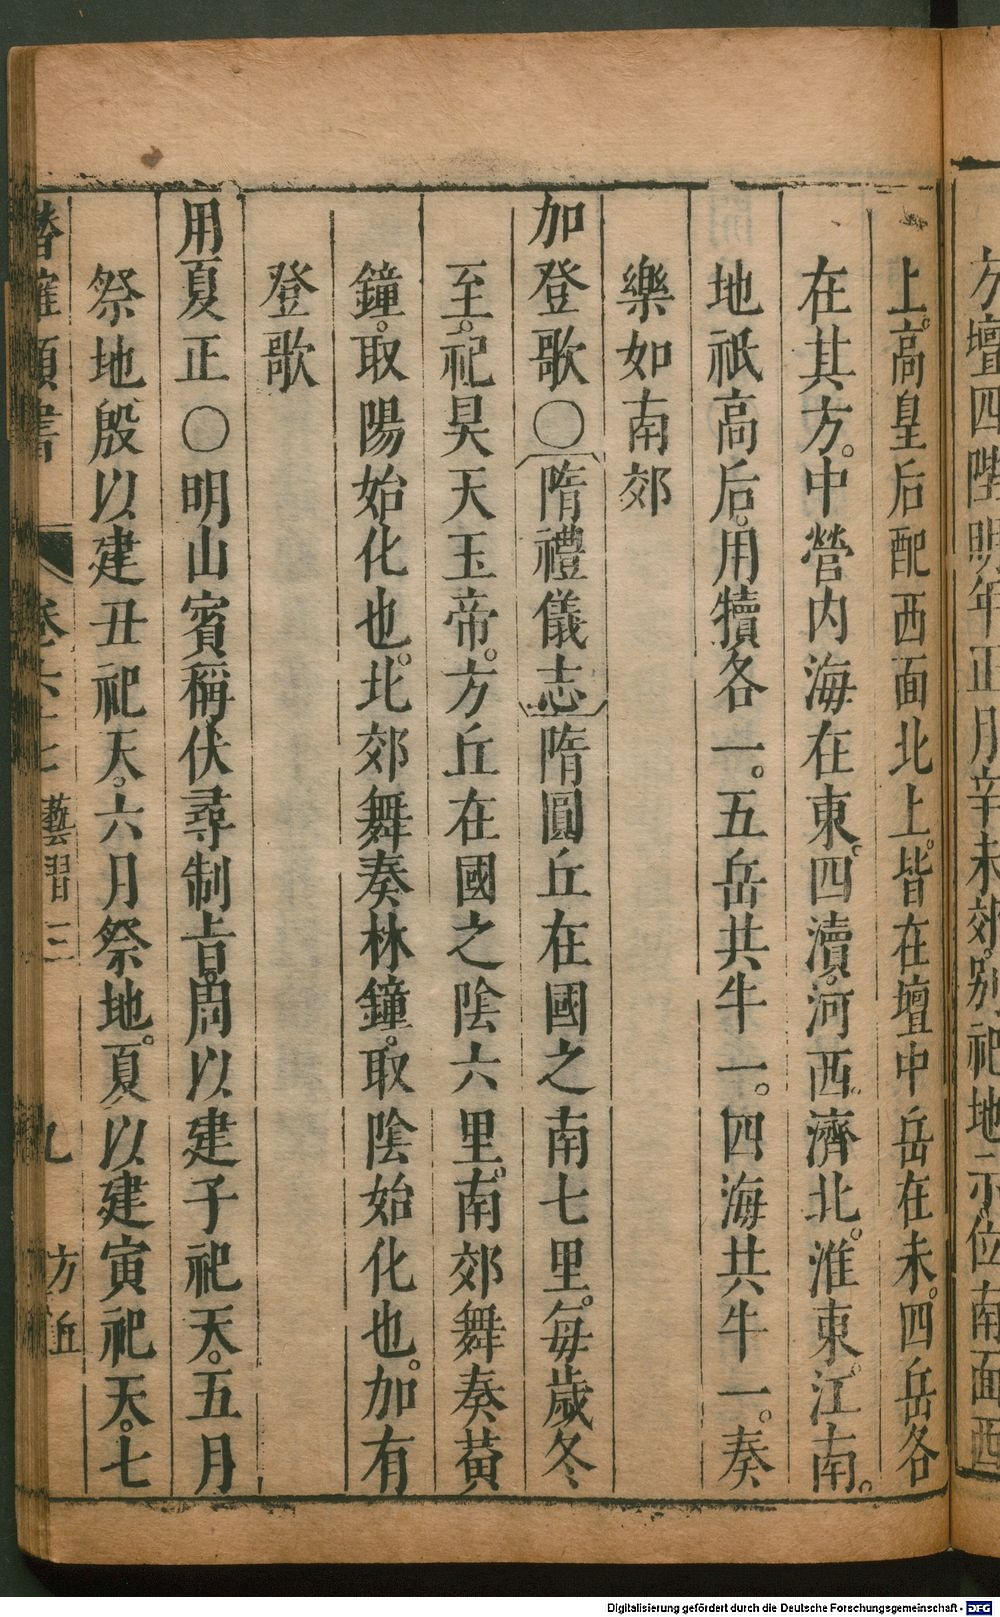 方壇四陛明年正月辛未郊別祀地示位南面酉
上高皇后配西面北上皆在壇中岳在未四岳各
在其方。中營内海在東四瀆河西濟北淮東江南。
地祇高后用犢各一。五岳共牛一。四海共牛一。奏
樂如南郊
加登歌○隋禮儀志隋圓丘在國之南七里每歲冬
至祀昊天玉帝。方丘在國之陰六里南郊舞奏黃
鐘。取陽始化也。北郊舞奏林鐘取陰始化也。加有
登歌
用夏正○明山賓稱伏尋制旨周以建子祀天。五月
祭地殷以建丑祀天。六月祭地。夏以建寅祀天七
類書 卷 藝習三 九 方丘
Digitalisierung gefördert durch die Deutsche Forschungsgemeinschaft - DFG